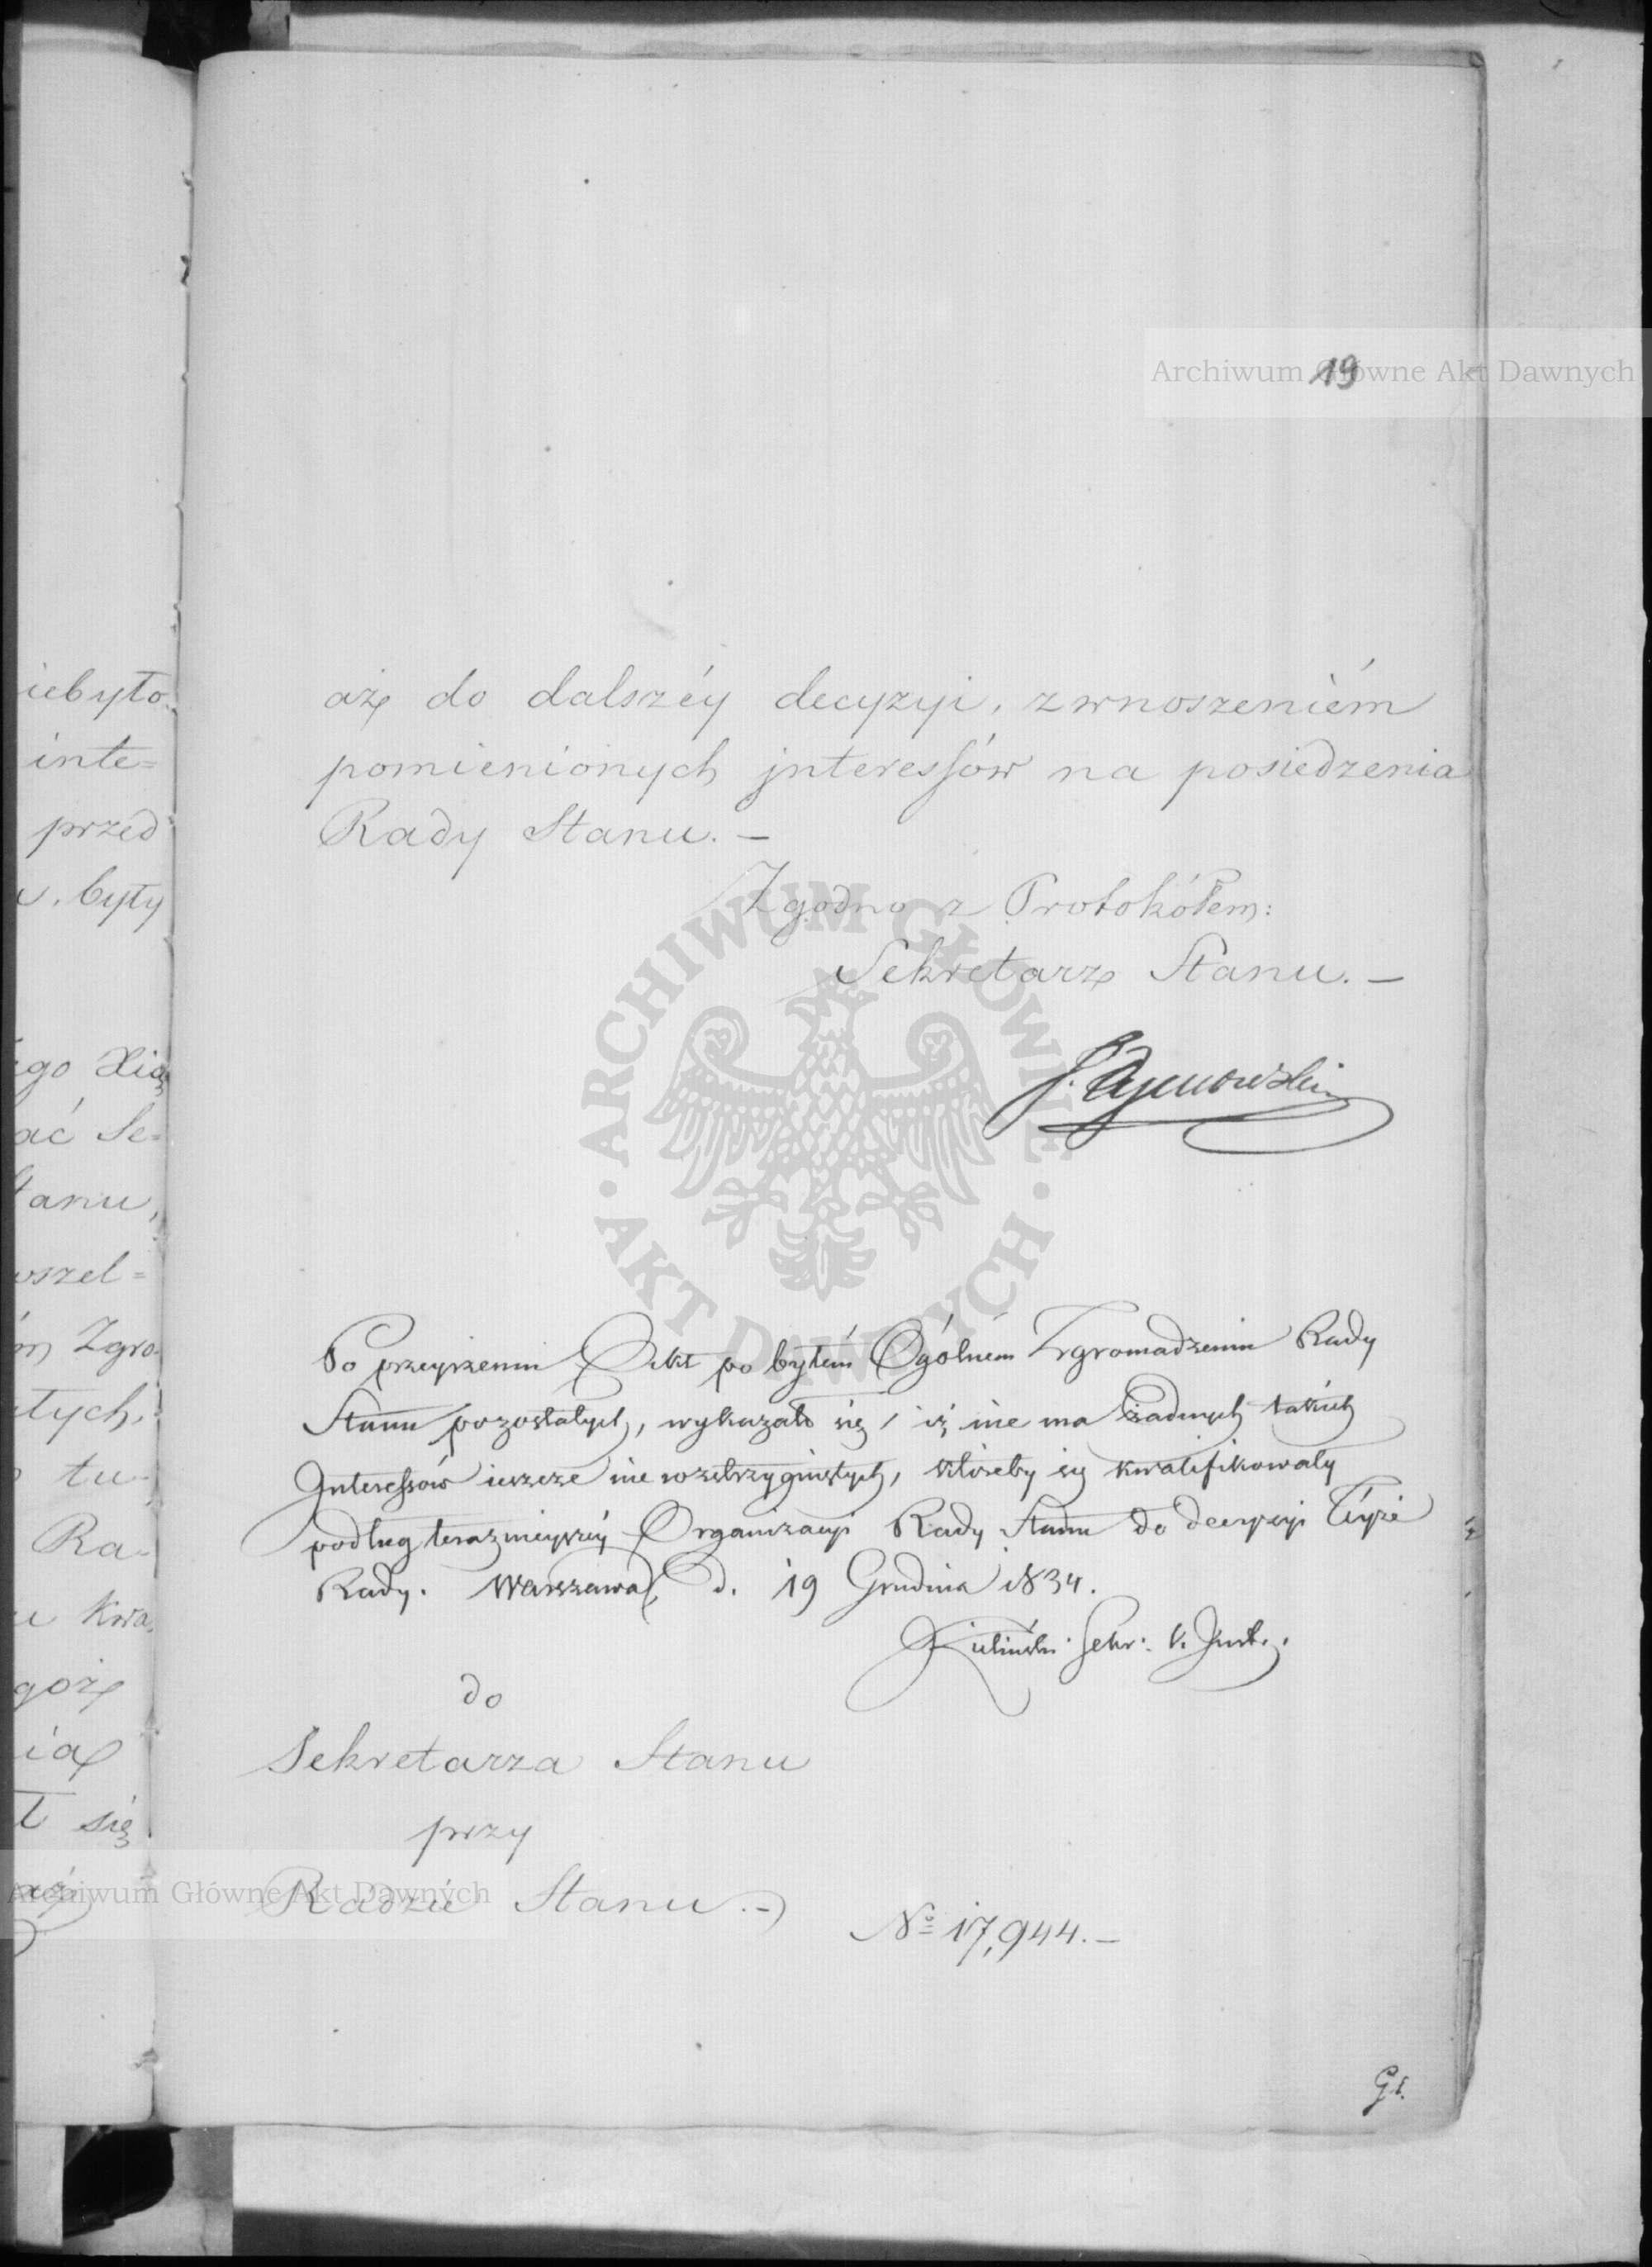 19
aż do dalszéy decyzyi, z wnoszeniém
pomienionych jnteressów na posiedzenia
Rady Stanu. —
Zgodno z Protokółem:
Sekretarz Stanu. —
J. Tymowski
Po przeyrzeniu Akt po byłém Ogólném Zgromadzeniu Rady
Stanu pozostałych, wykazało się, iż nie ma żadnych takich
Interessów ieszcze nie rozstrzygniętych, któreby się kwalifikowały
podług teraznieyszéy Organizacyi Rady Stanu do decyzyi Téyże
Rady. Warszawa, d. 19 Grudnia 1834.
Sekr:
do
Sekretarza Stanu
przy
Radzie Stanu. —
No 17,944. —
iebyło
inte=
przed
u. były
go Xią
ać Se=
tanu,
wszel=
m Zgro=
tych,
tu=
Ra=
u kwa
goż
ią
ł się
aż
Archiwum Główne Akt Dawnych
ARCHIWUM GŁÓWNE · AKT DAWNYCH ·
Archiwum Główne Akt Dawnych